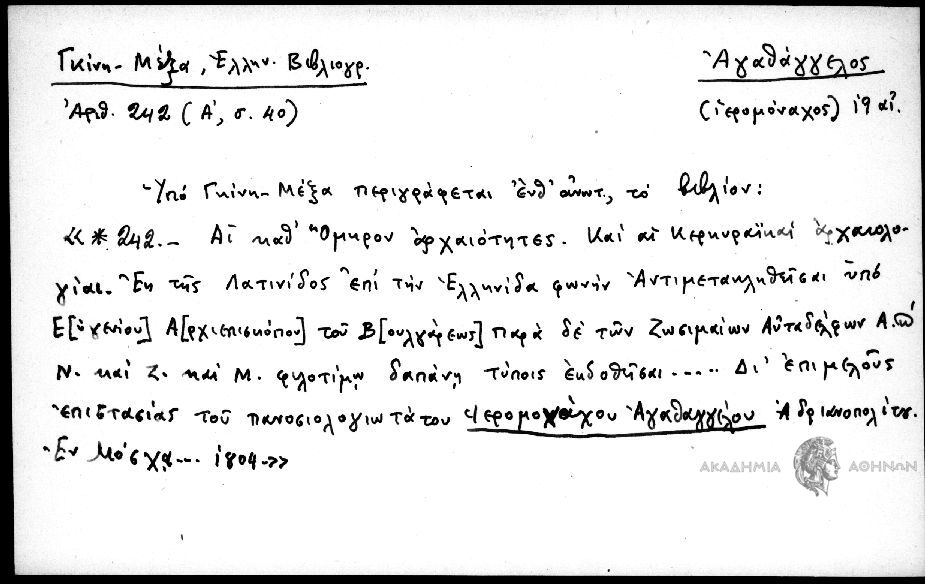 Γκίνη - Μέξα, Ἑλλην. Βιβλιογρ.
Ἀγαθάγγελος
Ἀριθ. 242 (Α', σ. 40)
(ἱερομόναχος) 19 αἰ.
Ὑπό Γκίνη - Μέξα περιγράφεται ἐνθ' ἀνωτ., τό βιβλίον:
«* 242.- Αἱ καθ' Ὅμηρον ἀρχαιότητες. Καί αἱ Κερκυραϊκαί ἀρχαιολο-
γίαι. Ἐκ τῆς Λατινίδος ἐπί τήν Ἑλληνίδα φωνήν Ἀντιμετακληθεῖσαι ὑπό
Ε[ὐγενίου] Α[ρχιεπισκόπου] τοῦ Β[ουλγάρεως] παρά δέ τῶν Ζωσιμαίων Αὐταδέλφων Α.
Ν. καί Ζ. καί Μ. φιλοτίμῳ δαπάνῃ τύποις ἐκδοθεῖσαι ..... Δι' ἐπιμελοῦς
ἐπιστασίας τοῦ πανοσιολογιωτάτου Ἱερομονάχου Ἀγαθαγγέλου Ἀδριανοπολίτου.
Ἐν Μόσχᾳ ... 1804->>
ΑΚΑΔΗΜΙΑ ΑΘΗΝΩΝ